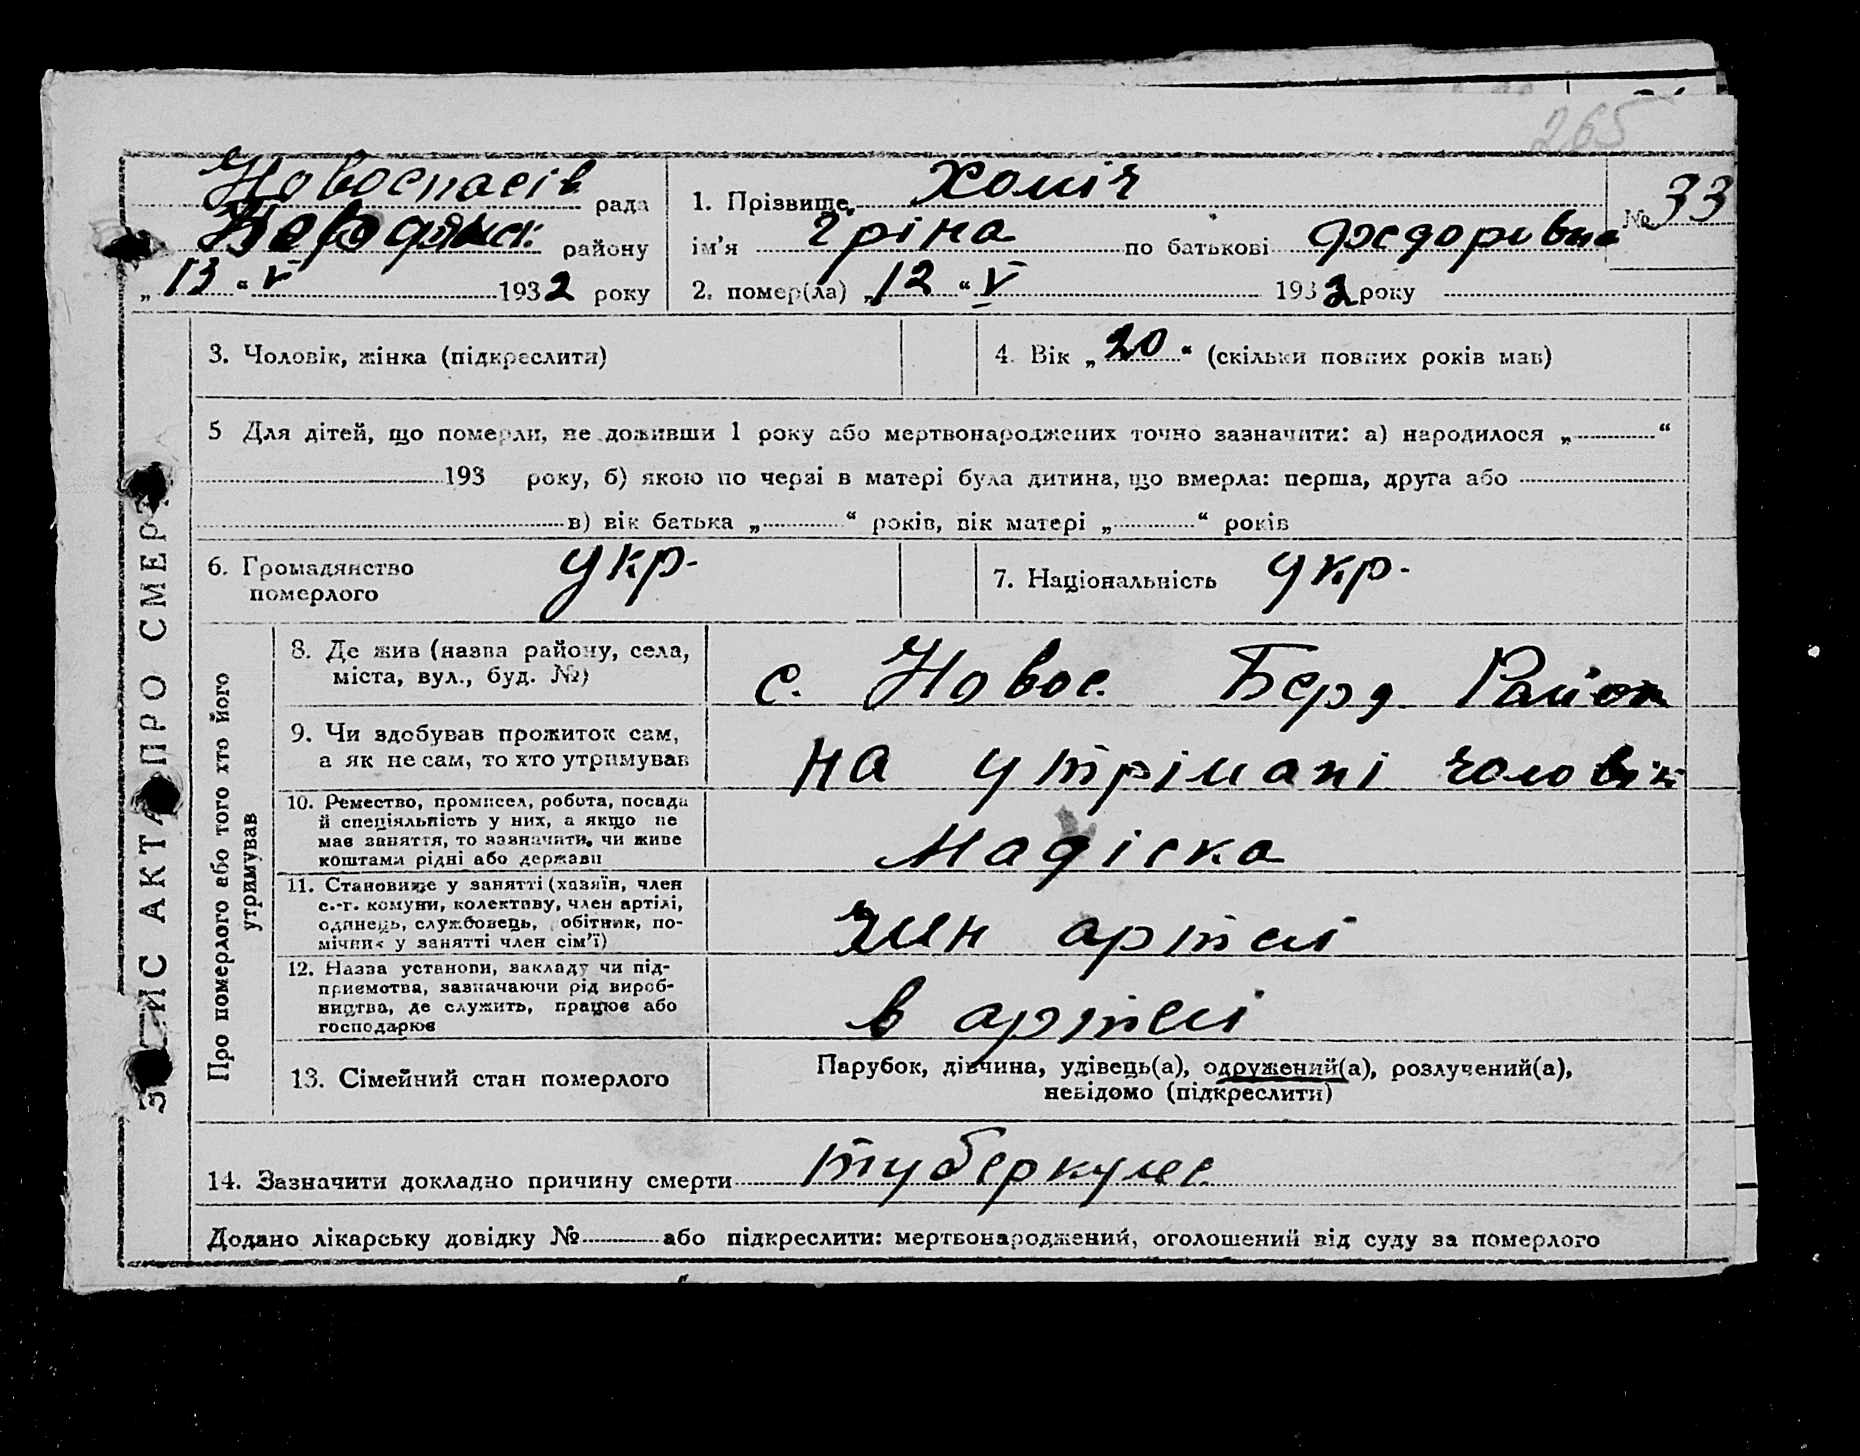 265
Новоспасів рада
Бердянськ району
„13“ V 1932 року
1. Прізвище Хоміч
ім'я Гріна по батькові Федоровна
№ 33
2. помер(ла) „12“ V 1932 року
3. Чоловік, жінка (підкреслити)
4. Вік „20“ (скільки повних років мав)
5 Для дітей, що померли, не доживши 1 року або мертвонароджених точно зазначити: а) народилося „ “
193 року, б) якою по черзі в матері була дитина, що вмерла: перша, друга або
в) вік батька „ “ років, вік матері „ “ років
6. Громадянство
померлого
укр.
7. Національність укр.
ЗАПИС АКТА ПРО СМЕРТЬ
Про померлого або того хто його
утримував
8. Де жив (назва району, села,
міста, вул., буд. №)
с. Новос. Берд Район
9. Чи здобував прожиток сам,
а як не сам, то хто утримував
на утрімані чоловік
10. Ремество, промисел, робота, посада
й спеціяльність у них, а якщо не
мав заняття, то зазначити, чи живе
коштами рідні або держави
11. Становище у занятті (хазяїн, член
с.-г. комуни, колективу, член артілі,
одинець, службовець, обітник, по-
мічник у занятті член сім'ї)
член артелі
12. Назва установи, закладу чи під-
приємства, зазначаючи рід вироб-
ництва, де служить, працює або
господарює
в артелі
13. Сімейний стан померлого
Парубок, дівчина, удівець(а), одружений(а), розлучений(а),
невідомо (підкреслити)
14. Зазначити докладно причину смерти туберкулес
Додано лікарську довідку № або підкреслити: мертвонароджений, оголошений від суду за померлого